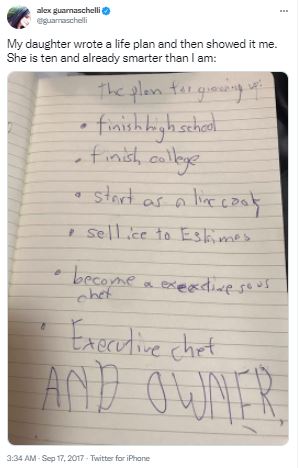 alex guarnaschelli
@guarnaschelli
My daughter wrote a life plan and then showed it me.
She is ten and already smarter than I am:
the plan for growing up:
• finish high school
• finish college
• start as a line cook
• sell ice to Eskimos
• become a executive sous
chef
• Executive chef
AND OWNER
3:34 AM · Sep 17, 2017 · Twitter for iPhone